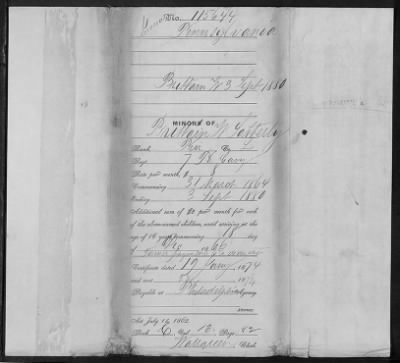 No. 115644
Pennsylvania
Brittain W 3 Sept 1880
MINORS OF
Brittain W.
Rank, Co. L
Regt. 7 Pa Cavy
Rate per month, 8
Commencing 31 March 1864
Ending 3 Sept 1880
Additional sum of $2 per month for each
of the above-named children, until arriving at the
age of 16 years, commencing 18 day
of July 1866
Certificate dated 19 1874
and sent
Payable at Philadelphia Agency
Act July 14, 1862.
Book C Vol. 12 Page 92
Clerk.